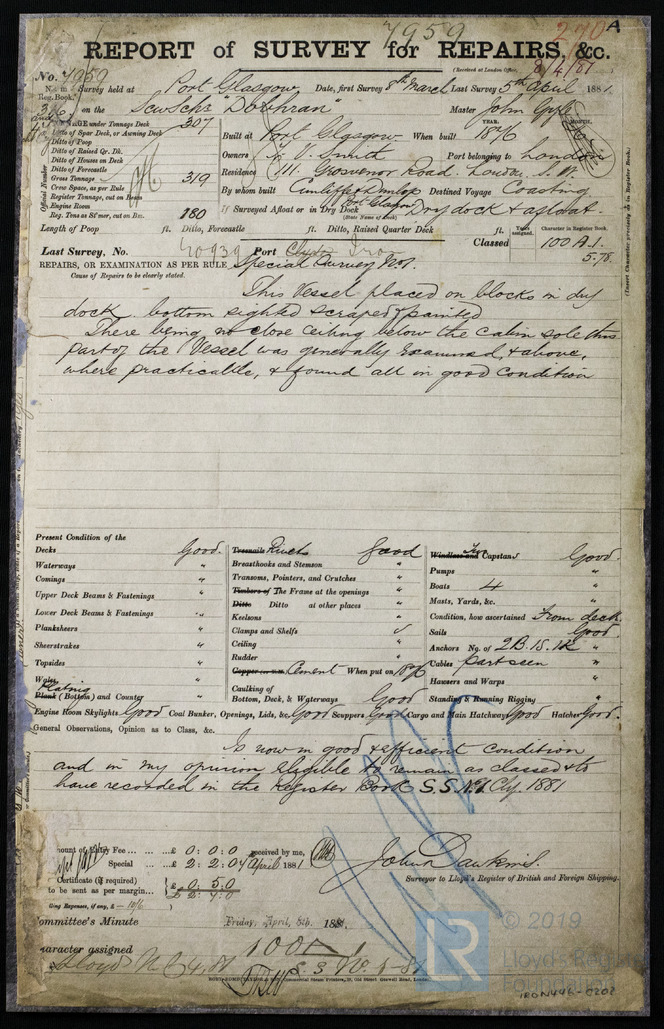 7959
270 A
REPORT of SURVEY for REPAIRS, &c.
(Received at London Office 8/4/81
No. 7959
No. in Reg. Book. Survey held at Port Glasgow Date, first Survey 8th March Last Survey 5th April 1881.
on the Sew Schr "Dobhran" Master John
TONNAGE under Tonnage Deck 307
Ditto of Spar Deck, or Awning Deck
Ditto of Poop
Ditto of Raised Qr. Dk.
Ditto of Houses on Deck
Ditto of Forecastle
Gross Tonnage 319
Crew Space, as per Rule
Register Tonnage, cut on Beam
Engine Room
Reg. Tons as St'mer, cut on Bm. 180
Official Number
Built at Port Glasgow When built YEAR. 1876 MONTH.
Owners V. Smith Port belonging to London
Residence 111. Grosvenor Road. London. S. W.
By whom built Cunliffe & Dunlop Destined Voyage Coasting
If Surveyed Afloat or in Dry Dock Port Glasgow Dry dock & afloat.
(State Name of Dock)
Length of Poop ft. Ditto, Forecastle ft. Ditto, Raised Quarter Deck ft.
Years assigned. Character in Register Book.
Last Survey, No. 20939 Port Clyde Iron Classed 100 A.1.
5.78.
REPAIRS, OR EXAMINATION AS PER RULE Special Survey No 1.
Cause of Repairs to be clearly stated.
(Insert Character precisely as in Register Book.)
This Vessel placed on blocks in dry
dock. bottom sighted scraped & painted
There being no close Ceiling below the Cabin sole this
part of the Vessel was generally Examined, & above,
where practicable, & found all in good Condition
Present Condition of the
Decks Good.
Waterways "
Comings "
Upper Deck Beams & Fastenings "
Lower Deck Beams & Fastenings "
Planksheers "
Sheerstrakes "
Topsides "
Wales "
Plating
Plank (Bottom) and Counter "
Treenails Rivets Good
Breasthooks and Stemson "
Transoms, Pointers, and Crutches "
Timbers of The Frame at the openings "
Ditto Ditto at other places "
Keelsons "
Clamps and Shelfs
Ceiling "
Rudder "
Cement When put on 1876
Caulking of
Bottom, Deck, & Waterways Good
Windlass and Two Capstans Good.
Pumps "
Boats 4 "
Masts, Yards, &c. "
Condition, how ascertained From deck.
Sails Good.
Anchors No. of 2B. 1S. 1K "
Cables part seen "
Hawsers and Warps "
Standing & Running Rigging "
Engine Room Skylights Good Coal Bunker, Openings, Lids, &c. Good Scuppers Good Cargo and Main Hatchway Good Hatches Good.
General Observations, Opinion as to Class, &c.
Is now in good & efficient Condition
and in my opinion eligible to remain as classed & to
have recorded in the Register Book S.S. No 1 Cly. 1881
Amount of Entry Fee £ 0 : 0 : 0 received by me,
Special £ 2 : 2 : 0 April 1881
Certificate (if required) £ 0. 5.0
to be sent as per margin
£ 2 : 7 : 0
Travelling Expenses, if any, £ 10/6
John Dawkins.
Surveyor to Lloyd's Register of British and Foreign Shipping.
Committee's Minute Friday, April, 8th. 1881.
Character assigned 100 A 1
Lloyds
S.S. No 1-81
© 2019
LR
Lloyd's Register
Foundation
IRON446-0202